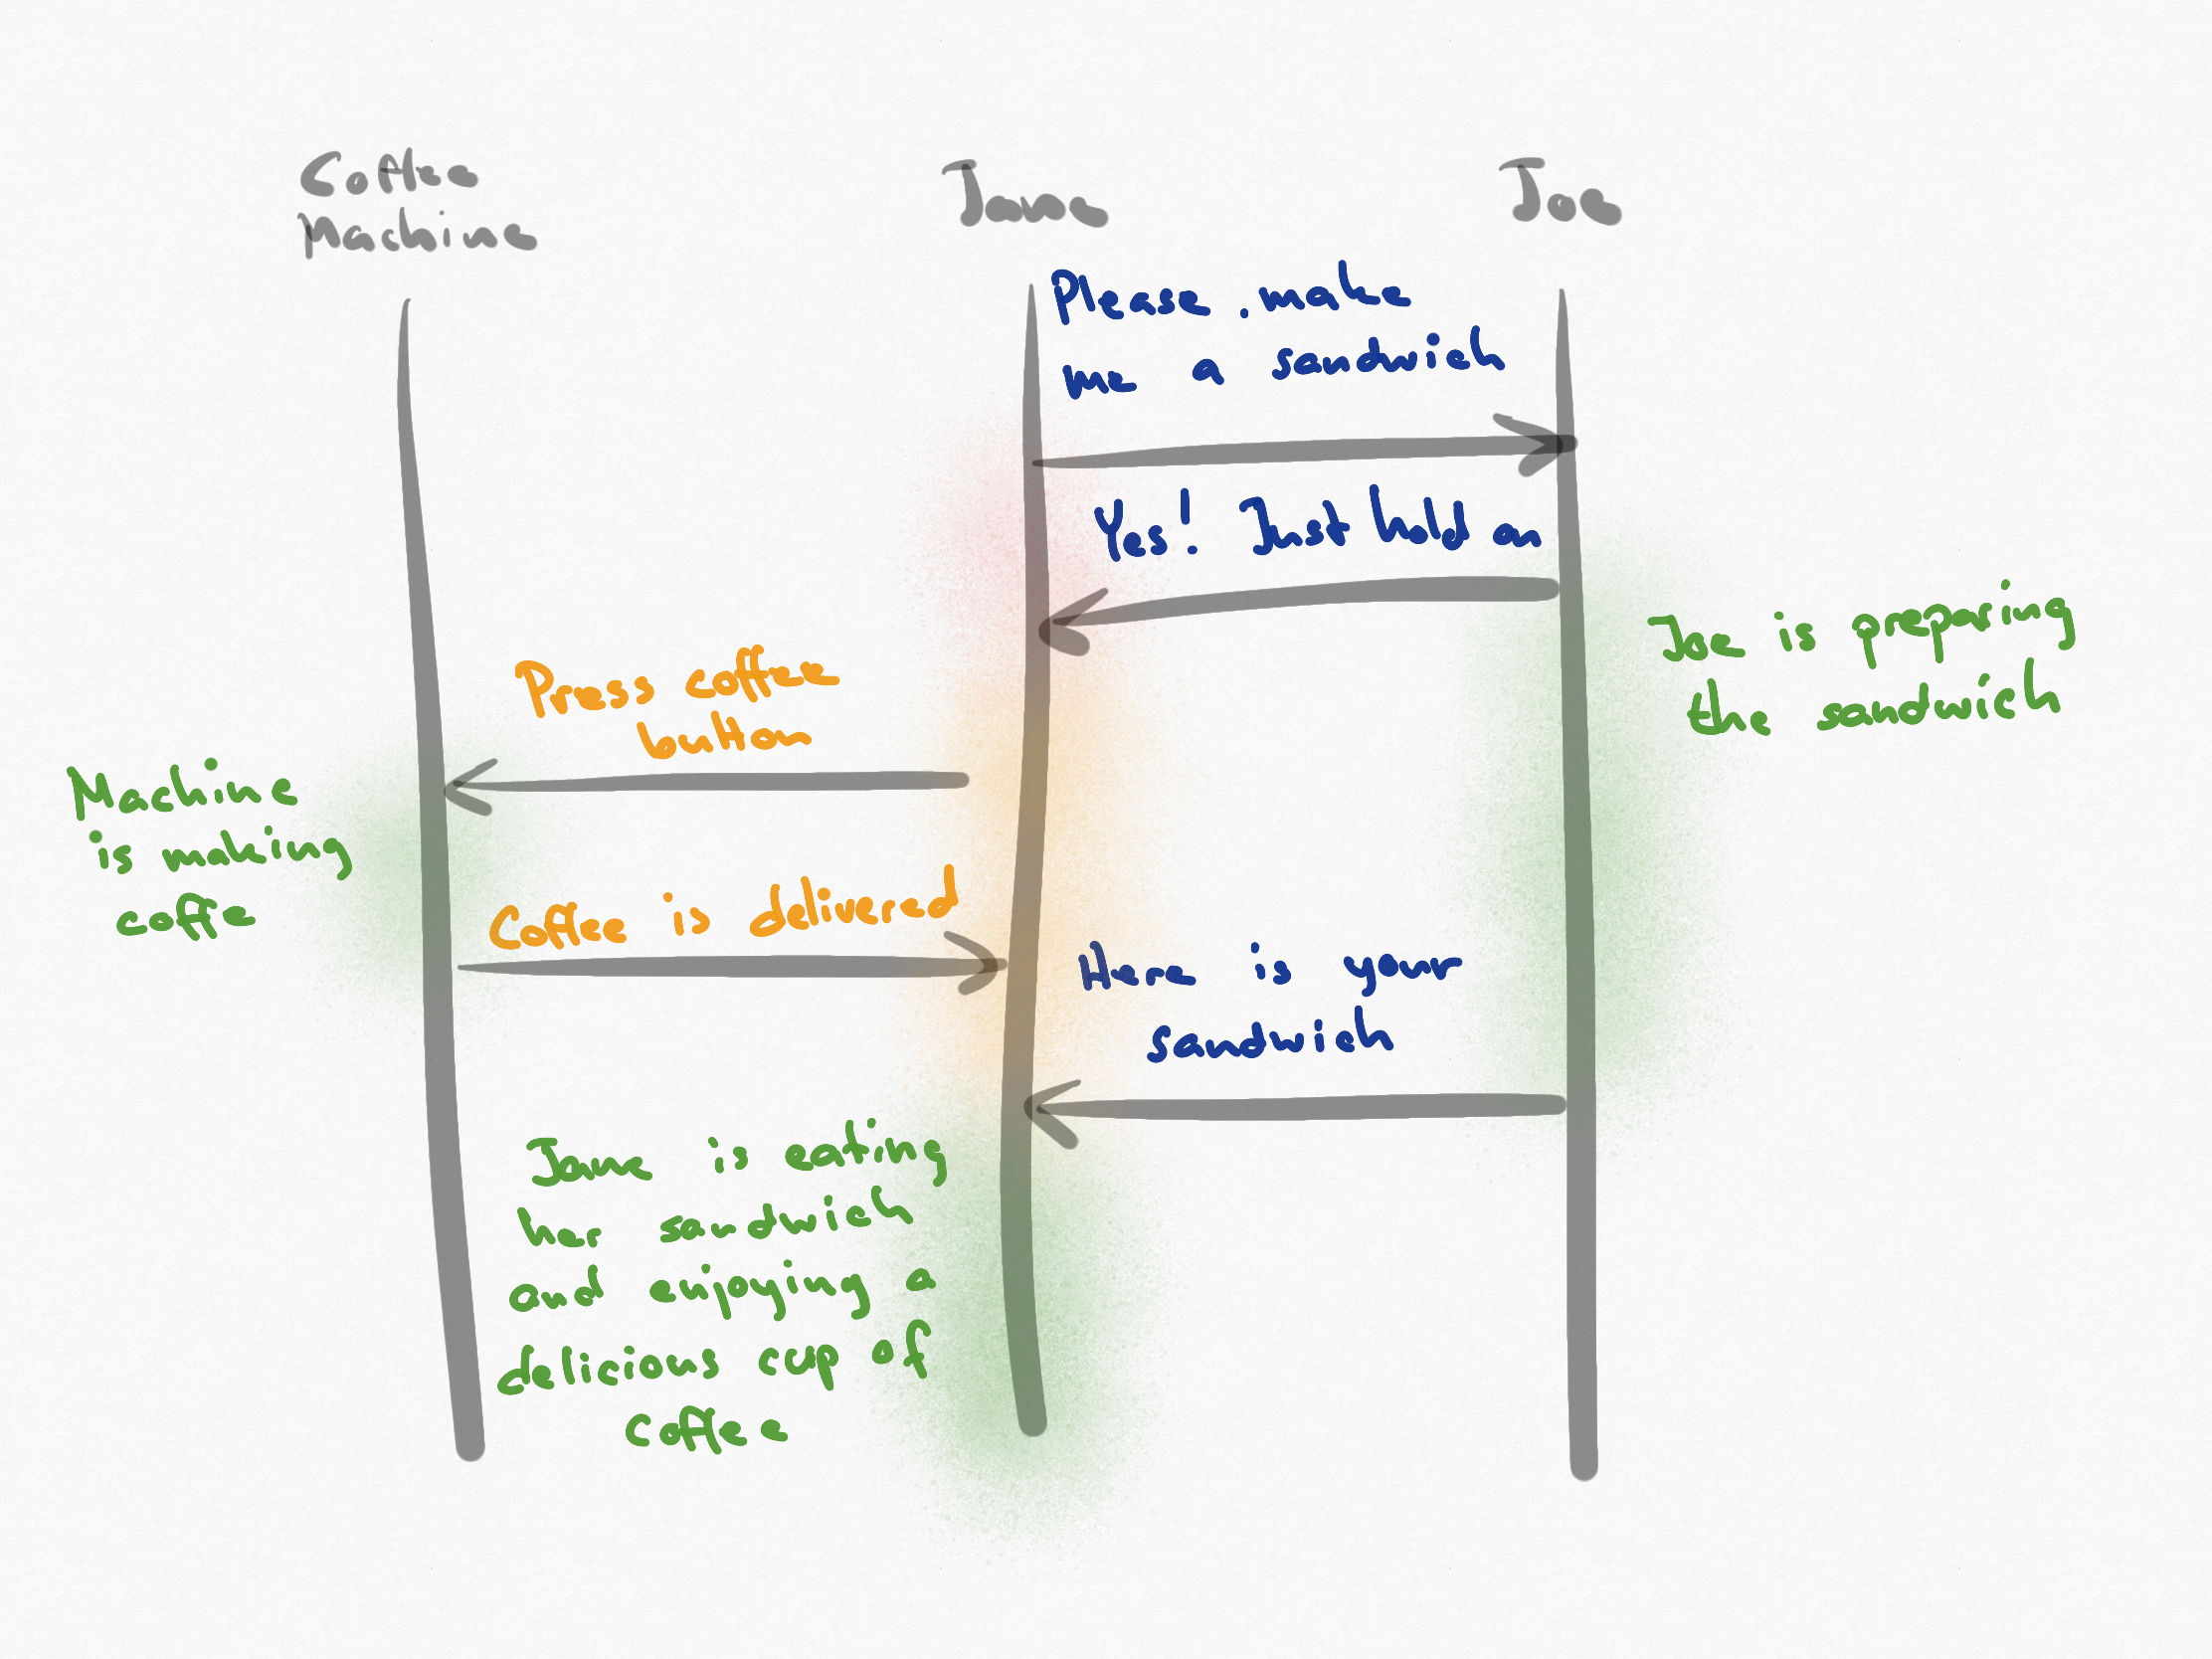 Coffee
Machine
Jane
Joe
Please. make
me a sandwich
Yes! Just hold on
Joe is preparing
the sandwich
Press coffee
button
Machine
is making
coffe
Coffee is delivered
Here is your
sandwich
Jane is eating
her sandwich
and enjoying a
delicious cup of
coffee